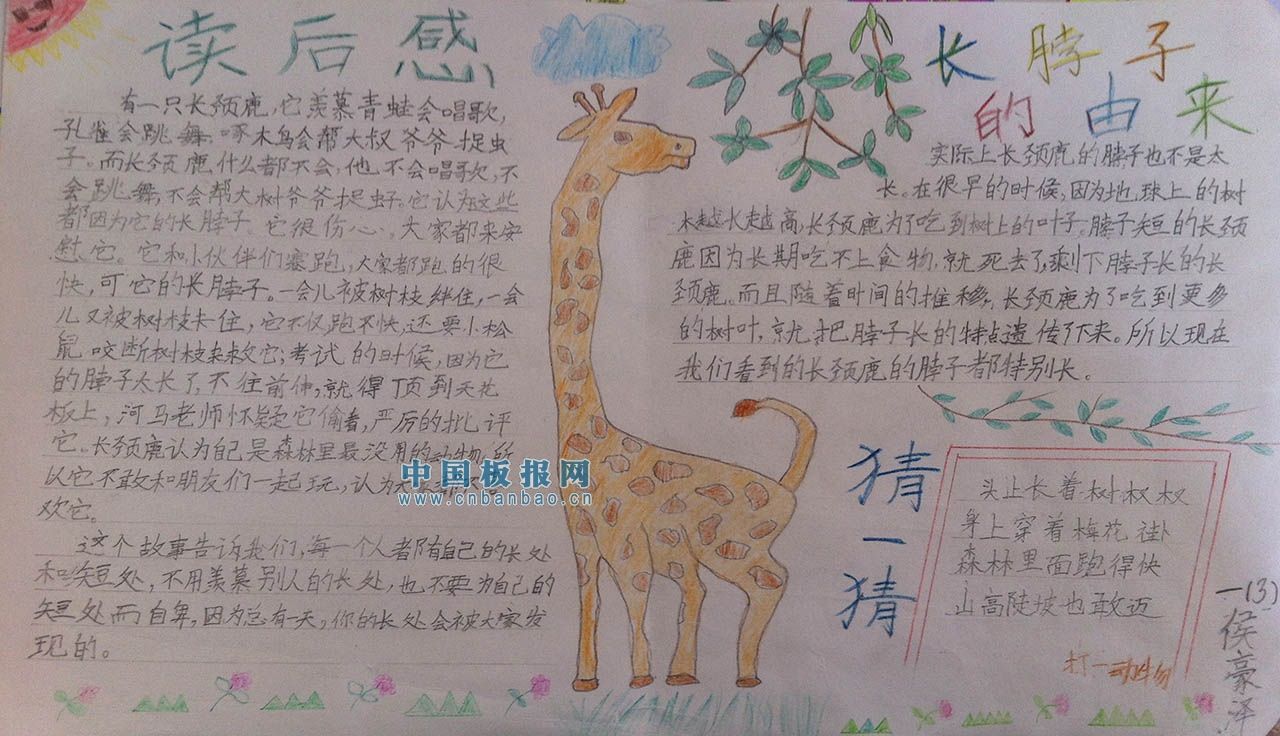 读后感
有一只长颈鹿,它羡慕青蛙会唱歌,
孔雀会跳舞,啄木鸟会帮大叔爷爷捉虫
子。而长颈鹿什么都不会,他不会唱歌,不
会跳舞,不会帮大树爷爷捉虫子。它认为这些
都因为它的长脖子,它很伤心,大家都来安
慰它。它和小伙伴们赛跑,大家都跑的很
快,可它的长脖子。一会儿被树枝绊住,一会
儿又被树枝卡住,它不仅跑不快,还要小松
鼠咬断树枝来救它;考试的时候,因为它
的脖子太长了,不往前伸,就得顶到天花
板上,河马老师怀疑它偷看,严厉的批评
它。长颈鹿认为自己是森林里最没用的动物,所
以它不敢和朋友们一起玩,认为
欢它。
这个故事告诉我们,每一个人都有自己的长处
和短处,不用羡慕别人的长处,也不要为自己的
短处而自卑,因为总有一天,你的长处会被大家发
现的。
中国板报网
www.cnbanbao.cn
长脖子
的由来
实际上长颈鹿的脖子也不是太
长。在很早的时候,因为地球上的树
木越长越高,长颈鹿为了吃到树上的叶子。脖子短的长颈
鹿因为长期吃不上食物,就死去了,剩下脖子长的长
颈鹿。而且随着时间的推移,长颈鹿为了吃到更多
的树叶,就把脖子长的特点遗传了下来。所以现在
我们看到的长颈鹿的脖子都特别长。
猜一猜
头上长着树杈杈
身上穿着梅花褂
森林里面跑得快
山高陡坡也敢迈
打一动物
一(3)
侯豪泽